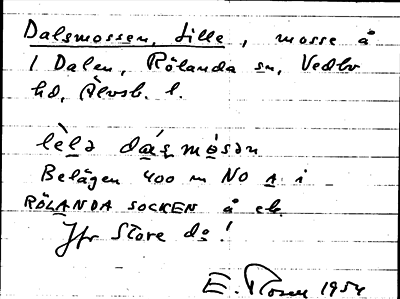 Dalsmossen, Lille, mosse å
1 Dalen, Rölanda sn, Vedbo
hd, Älvsb. l.
lèla dásmòsan
Belägen 400 m NO A i
RÖLANDA SOCKEN å ek.
Jfr Store do!
E. Rosen 1954